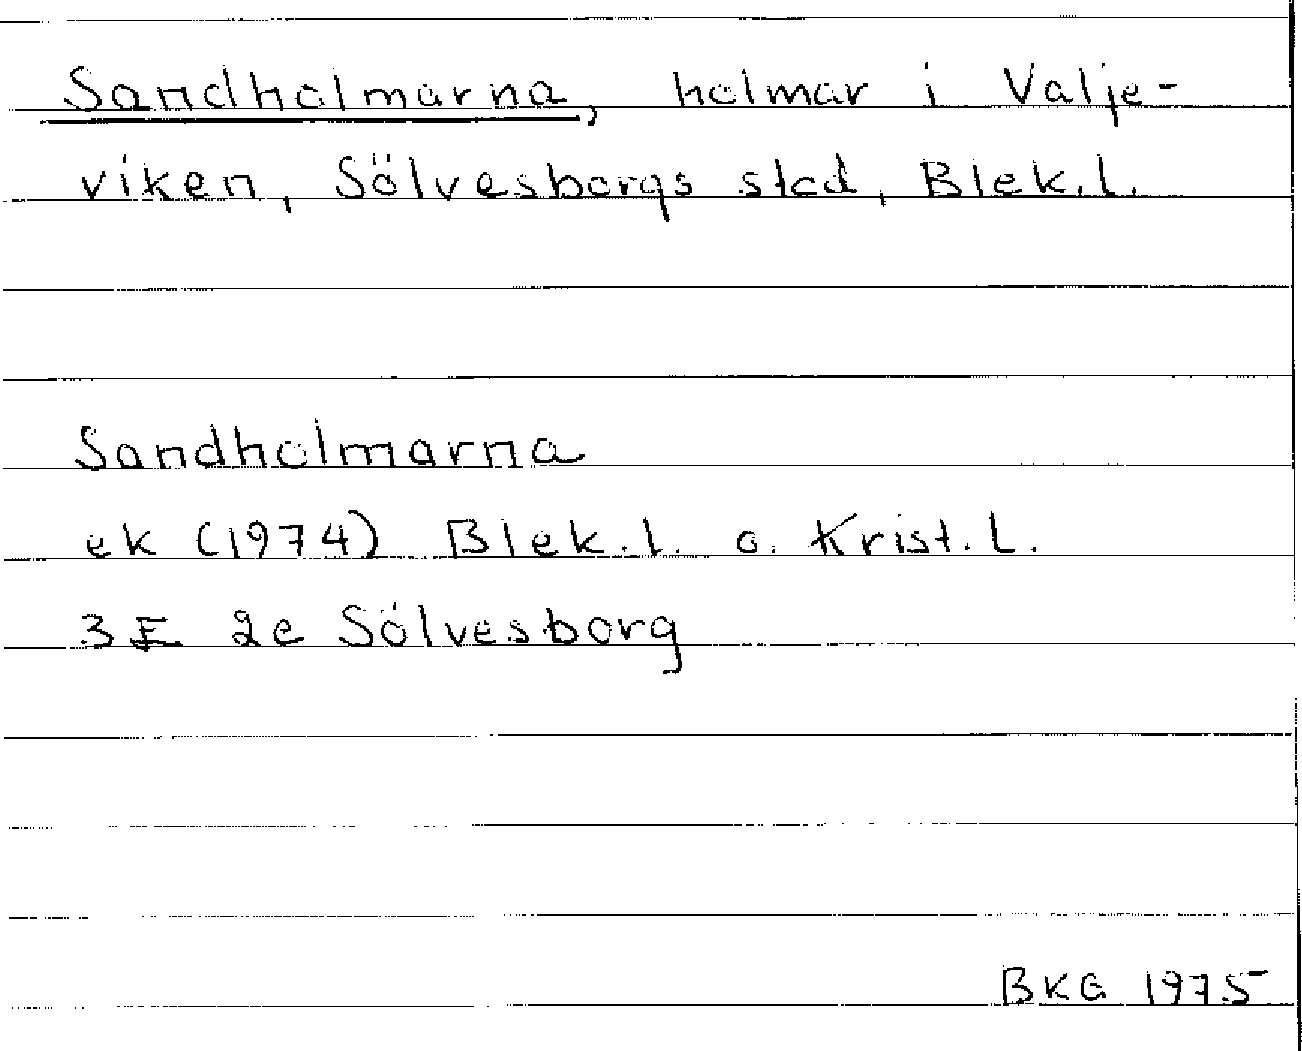 Sandholmarna, holmar i Valje-
viken, Sölvesborgs stad, Blek.l.
Sandholmarna
ek (1974) Blek.l. o. Krist.l.
3E 2e Sölvesborg
BKG 1975